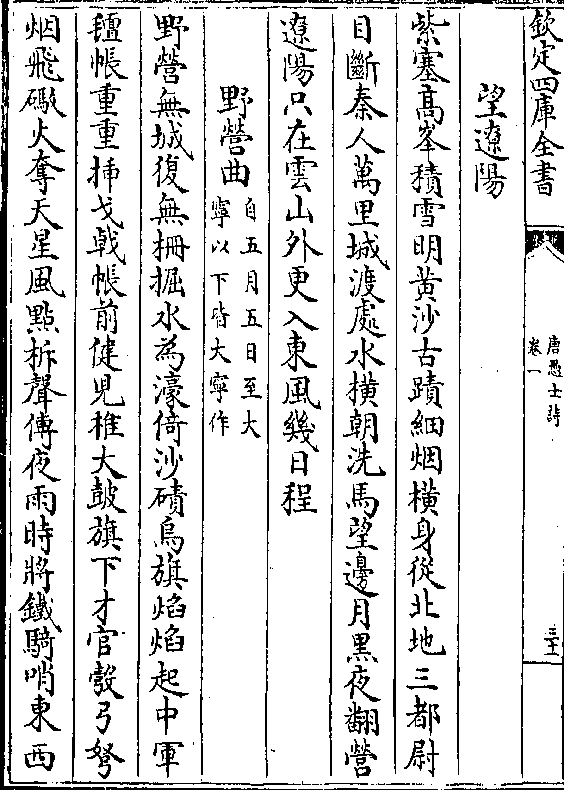 欽定四庫全書
唐愚士詩
卷一
三十
望遼陽
紫塞髙峯積雪明黄沙古蹟細烟横身從北地三都尉
目斷秦人萬里城渡處水横朝洗馬望邊月黒夜翻營
遼陽只在雲山外更入東風幾日程
野營曲
自五月五日至大
寧以下皆大寧作
野營無城復無柵掘水為濠倚沙磧烏旗焰焰起中軍
氊帳重重揷戈戟帳前健兒椎大鼓旗下才官彀弓弩
烟飛礮火奪天星風㸃柝聲傳夜雨時將鐵騎哨東西